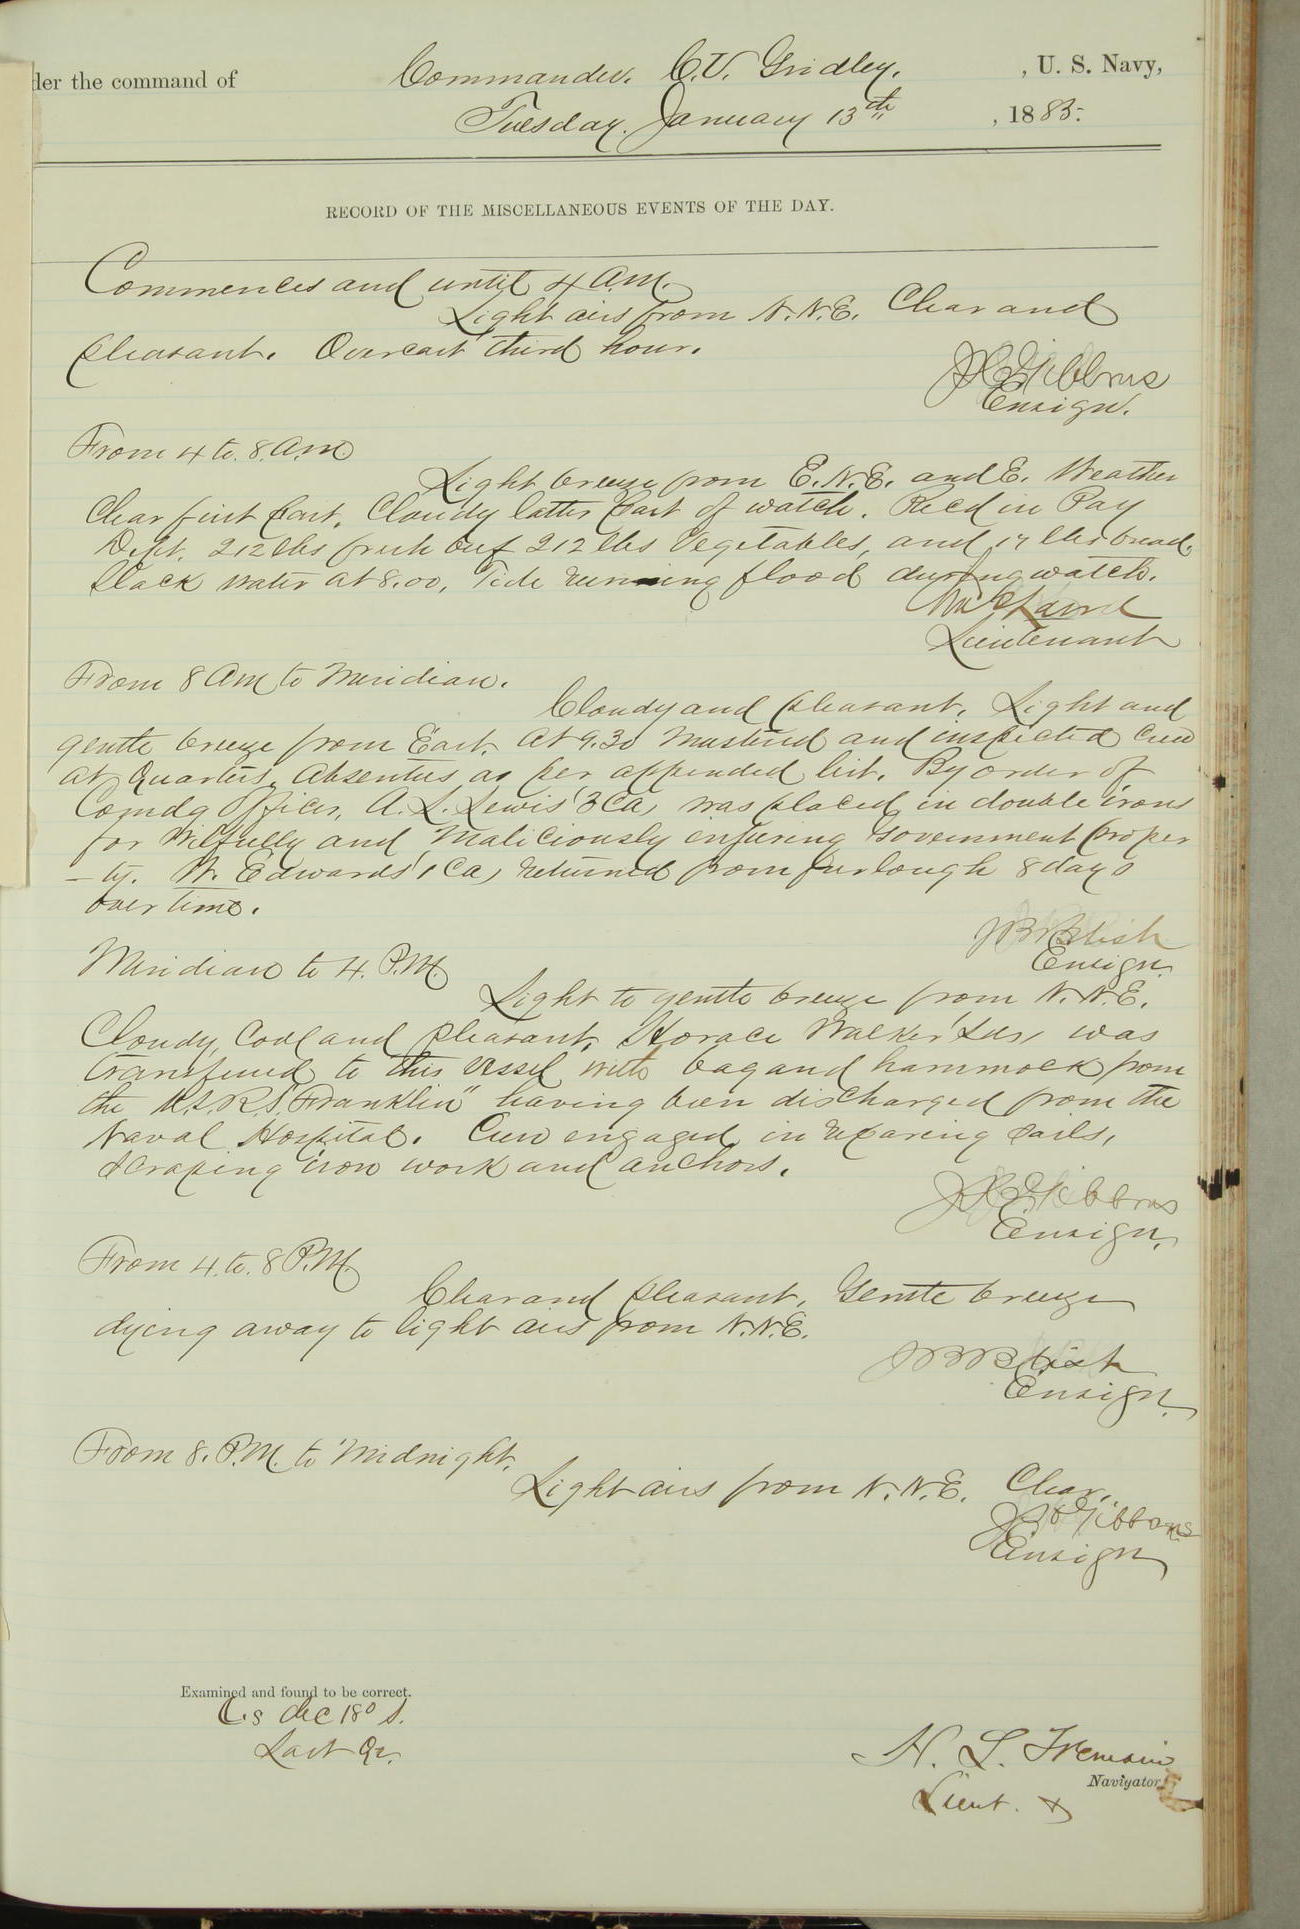 der the command of Commander. C.V. Gridley. , U. S. Navy,
Tuesday. January 13th , 1885.
RECORD OF THE MISCELLANEOUS EVENTS OF THE DAY.
Commences and until 4 A.M.
Light airs from N.N.E. Clear and
pleasant. Overcast third hour.
J.H. Gibbons
Ensign.
From 4 to 8. A.M.
Light breeze from E.N.E. and E. Weather
Clear first part, Cloudy latter part of watch. Recd in Pay
Dept. 212 lbs fresh beef 212 lbs Vegetables, and 17 lbs bread.
Slack water at 8.00, Tide running flood during watch.
Lieutenant
From 8 AM to Meridian.
Cloudy and pleasant. Light and
gentle breeze from East. At 9.30 Mustered and inspected Crew
at Quarters, Absentees as per appended list. By order of
Comdg Officer, A. L. Lewis (3 Ca) was placed in double irons
for Wilfully and Maliciously enjuring Government proper
-ty. W. Edwards (1 Ca) returned from furlough 8 days
over time.
J B Blish
Ensign.
Meridian to 4. P.M.
Light to gentle breeze from N.N.E.
Cloudy, Cool and pleasant. Horace Walker (Lds) was
transferred to this Vessel with bag and hammock from
the U.S.R.S. "Franklin" having been discharged from the
Naval Hospital. Crew engaged in reparing sails,
scraping iron work and anchors.
J.H. Gibbons
Ensign.
From 4. to. 8 P.M.
Clear and pleasant, Gentle breeze
dying away to light airs from N.N.E.
J B Blish
Ensign.
From 8. P.M. to Midnight.
Light airs from N.N.E. Clear.
J H Gibbons
Ensign
Examined and found to be correct.
C's dec 18° S.
Last Qr.
H. L. Tremain
Navigator.
Lieut.